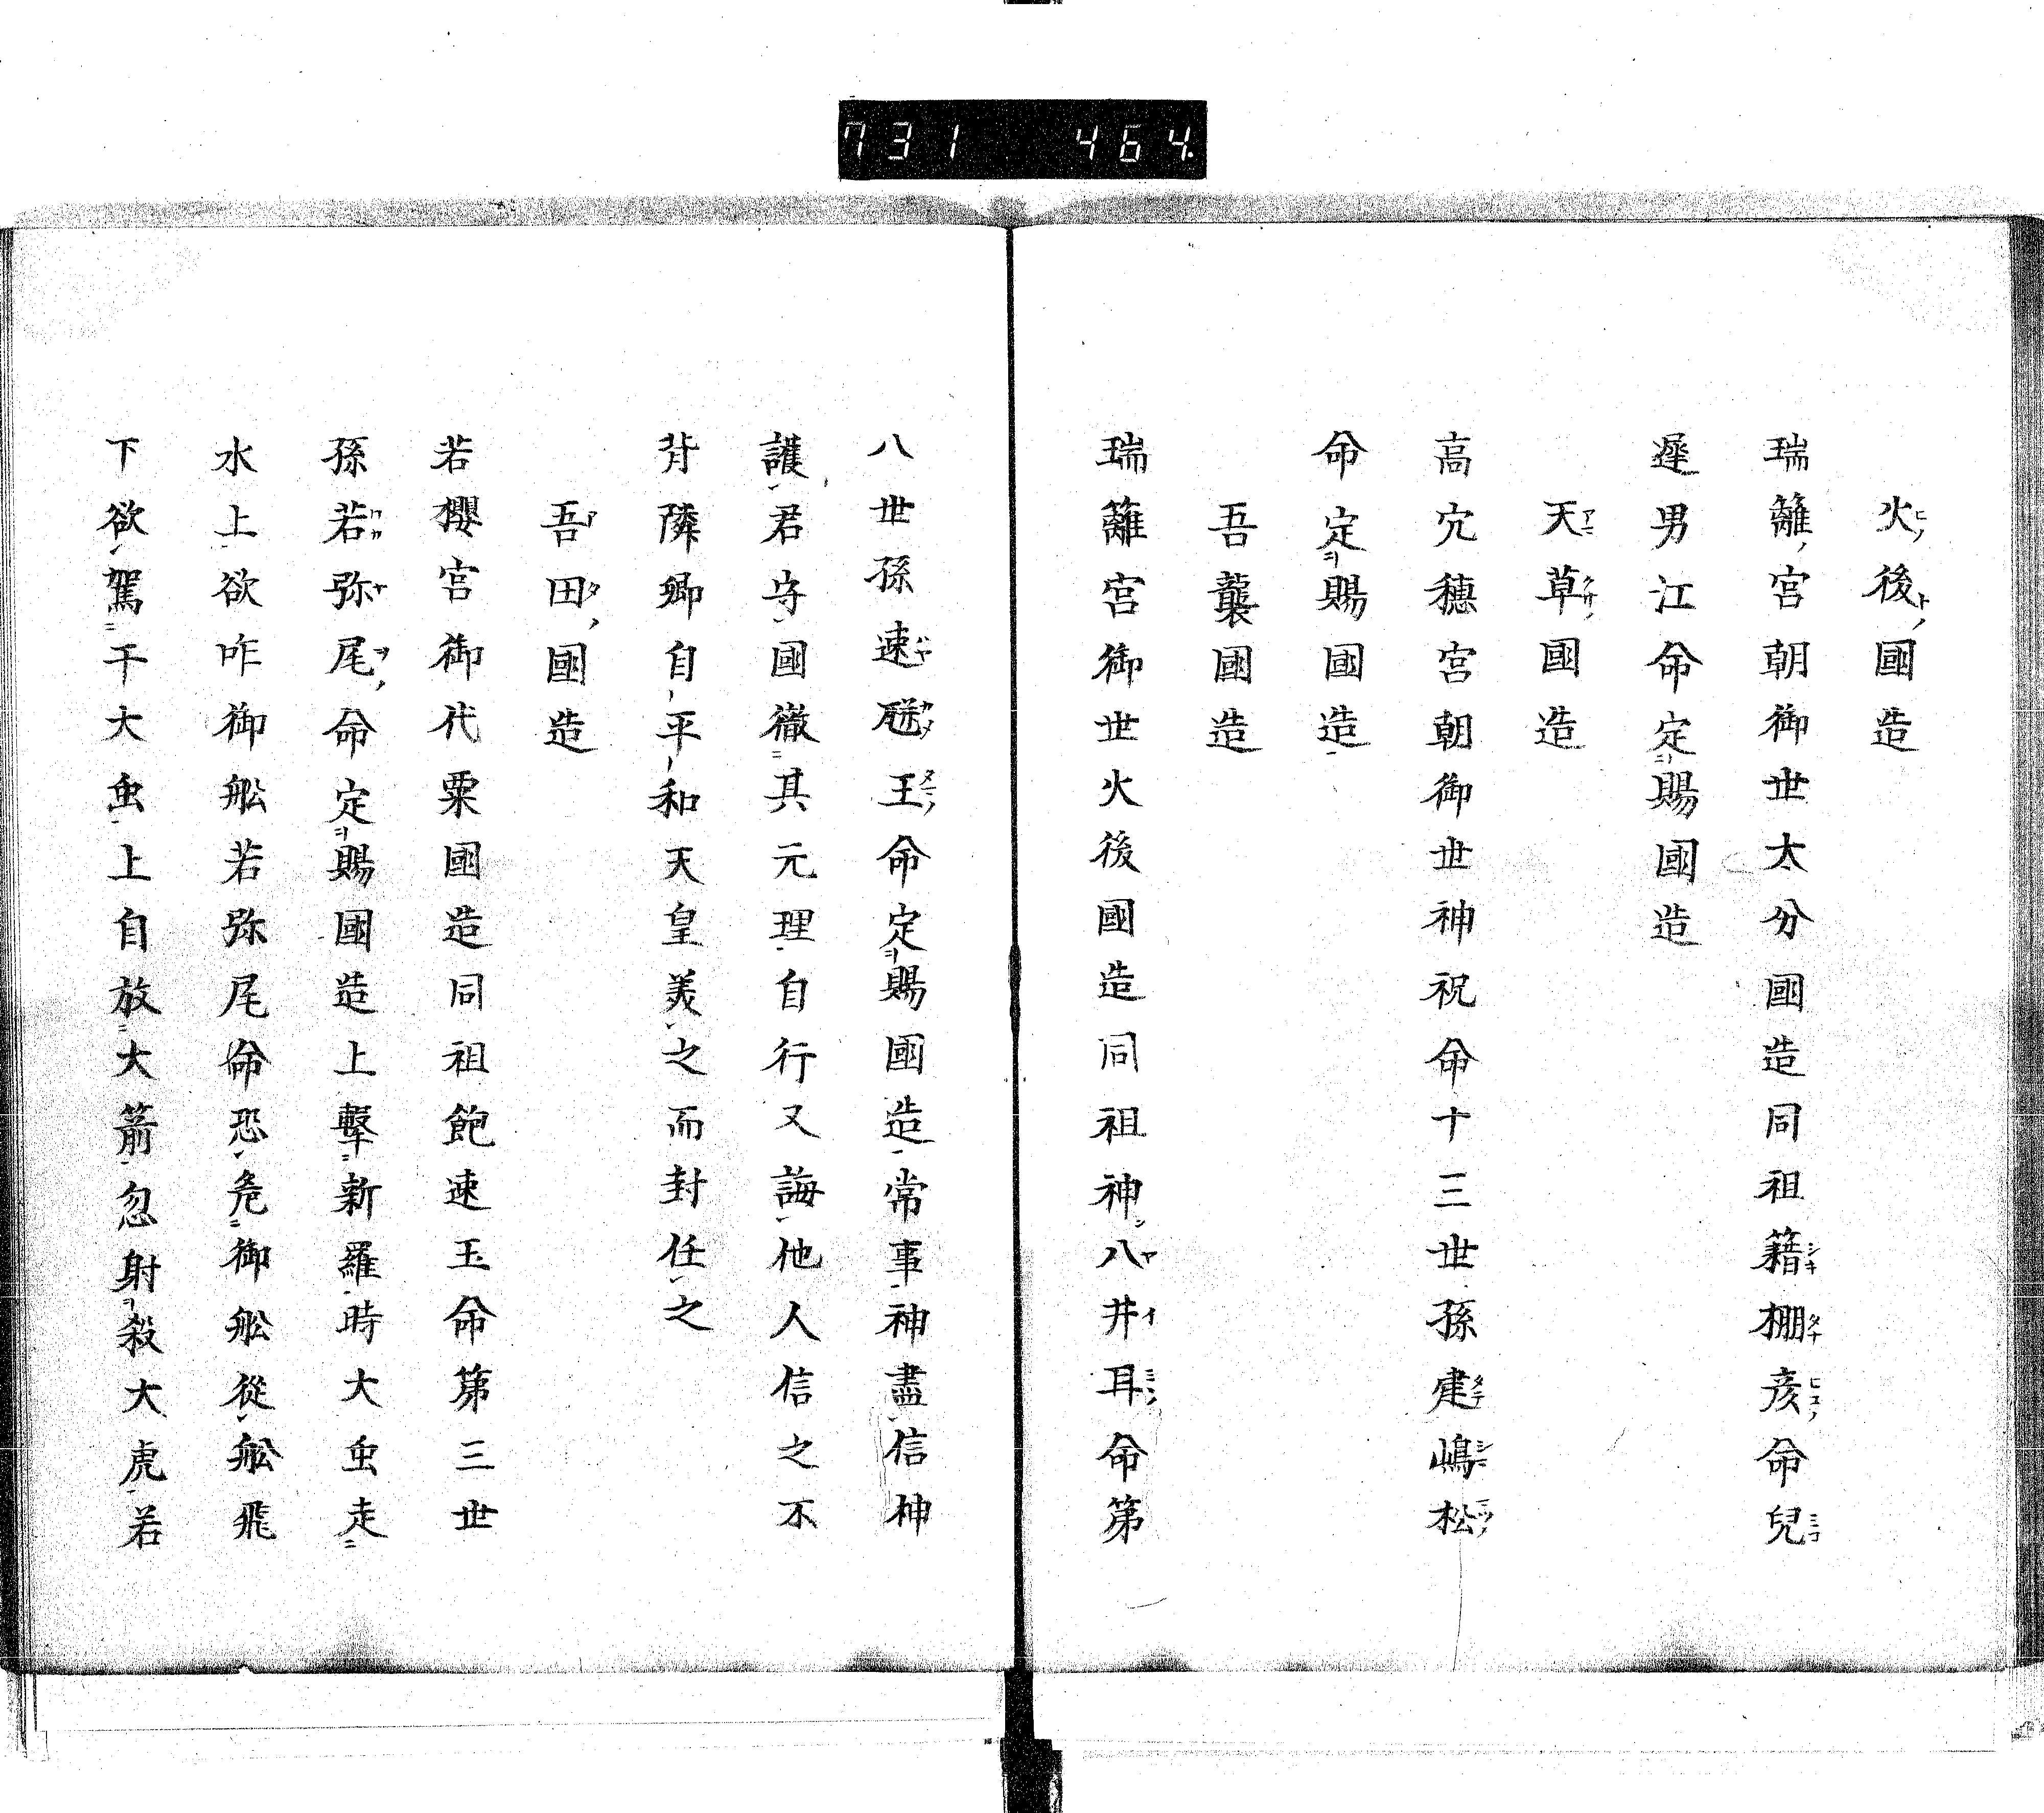 731 464.
火後國造
瑞籬宮朝御世大分國造同祖籍棚彥命兒
遲男江命定賜國造
天草國造
高穴穗宮朝御世神祝命十三世孫建嶋松
命定賜國造
吾襲國造
瑞籬宮御世火後國造同祖神八井耳命第
八世孫速瓱王命定賜國造常事神盡信神
護君守國徹其元理自行又誨他人信之不
背隣卿自平和天皇美之而封任之
吾田國造
若櫻宮御代粟國造同祖飽速玉命第三世
孫若弥尾命定賜國造上擊新羅時大虫走
水上欲咋御舩若弥尾命恐危御舩從舩飛
下欲駕干大虫上自放大箭忽射殺大虎若